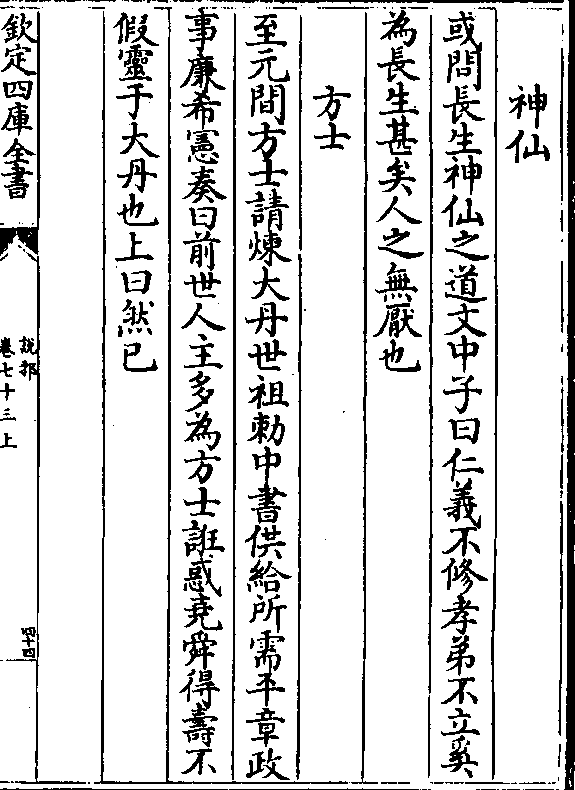 神仙
或問長生神仙之道文中子曰仁義不修孝弟不立奚
為長生甚矣人之無厭也
方士
至元間方士請煉大丹世祖勅中書供給所需平章政
事廉希憲奏曰前世人主多為方士誑惑堯舜得壽不
假靈于大丹也上曰然已
欽定四庫全書
說郛
卷七十三上
四十四